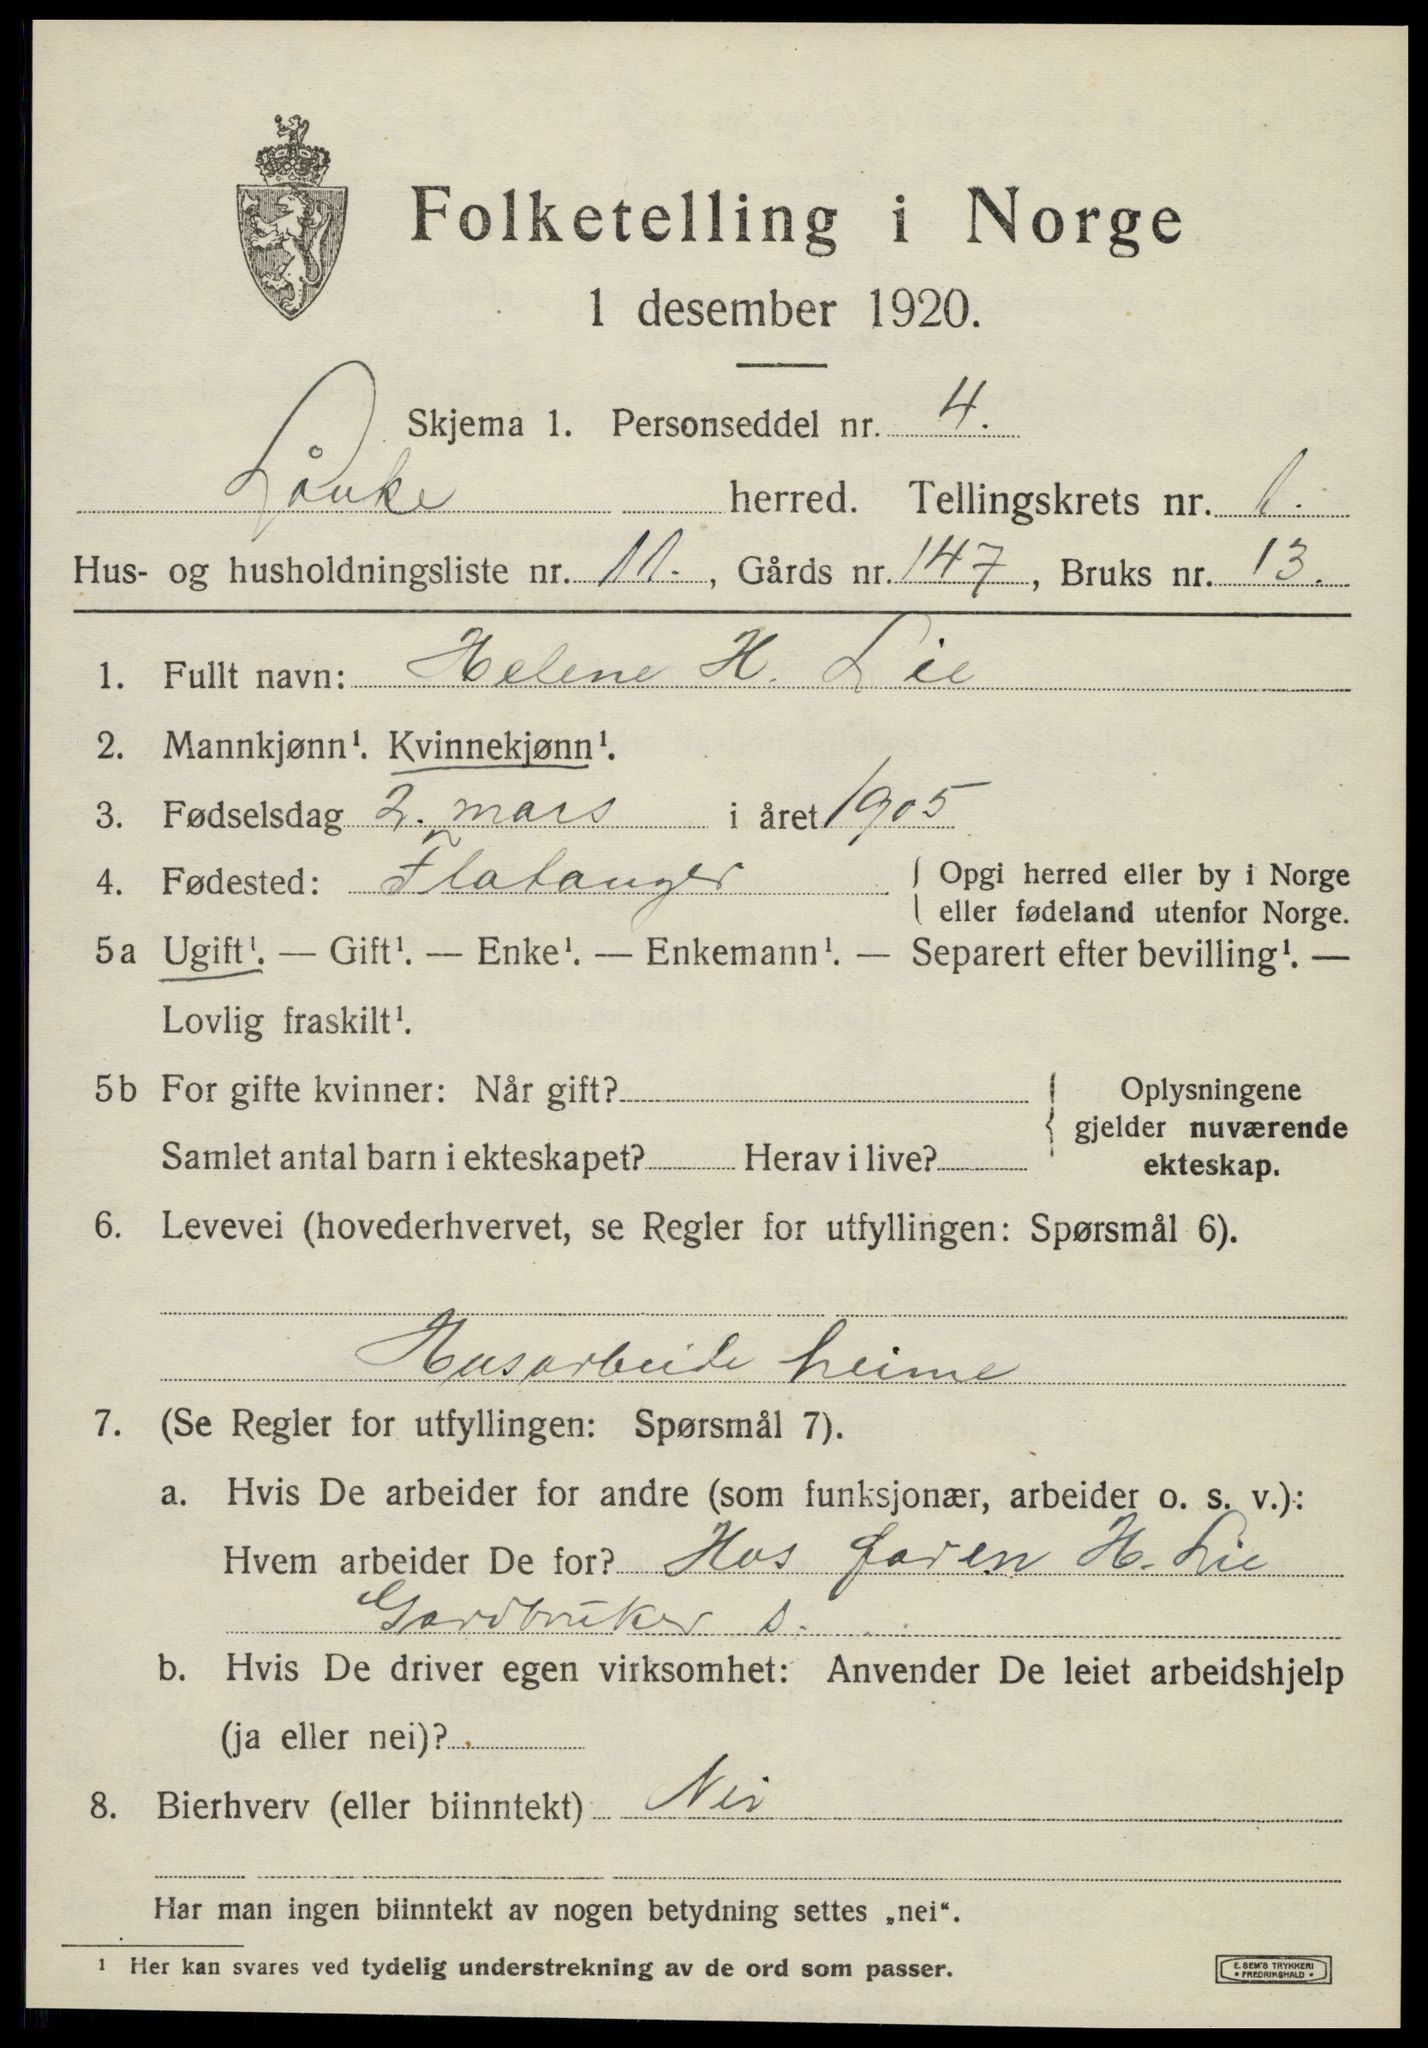 Folketelling i Norge
1 desember 1920.
Skjema 1. Personseddel nr. 4.
Lånke herred. Tellingskrets nr. 1.
Hus- og husholdningsliste nr. 11., Gårds nr. 147, Bruks nr. 13.
1. Fullt navn: Helene H. Lie
2. Mannkjønn¹. Kvinnekjønn¹.
3. Fødselsdag 2. mars i året 1905
4. Fødested: Flatanger { Opgi herred eller by i Norge
eller fødeland utenfor Norge.
5a Ugift¹. — Gift¹. — Enke¹. — Enkemann¹. — Separert efter bevilling¹. —
Lovlig fraskilt¹.
5b For gifte kvinner: Når gift? { Oplysningene
gjelder nuværende
Samlet antal barn i ekteskapet? Herav i live? ekteskap.
6. Levevei (hovederhvervet, se Regler for utfyllingen: Spørsmål 6).
Husarbeide heime
7. (Se Regler for utfyllingen: Spørsmål 7).
a. Hvis De arbeider for andre (som funksjonær, arbeider o. s. v.):
Hvem arbeider De for? Hos faren H. Lie
Gardbruker s.
b. Hvis De driver egen virksomhet: Anvender De leiet arbeidshjelp
(ja eller nei)?
8. Bierhverv (eller biinntekt) Nei
Har man ingen biinntekt av nogen betydning settes „nei“.
¹ Her kan svares ved tydelig understrekning av de ord som passer.
E. SEM'S TRYKKERI
• FREDRIKSHALD •